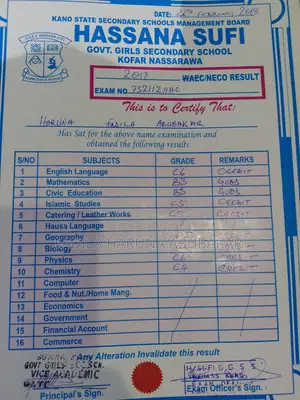 DATE: 26th February 2018
KANO STATE SECONDARY SCHOOLS MANAGEMENT BOARD
HASSANA SUFI
GOVT. GIRLS SECONDARY SCHOOL
KOFAR NASSARAWA
2017 WAEC/NECO RESULT
EXAM NO.
This is to Certify That:
HARUNA FADILA ABUBAKAR
Has Sat for the above name examination and
obtained the following results
S/NO SUBJECTS GRADE REMARKS
1 English Language C6 CREDIT
2 Mathematics B3 GOOD
3 Civic Education B3 GOOD
4 Islamic Studies C5 CREDIT
5 Catering / Leather Works C5 CREDIT
6 Hausa Language
7 Geography
8 Biology
9 Physics CREDIT
10 Chemistry C4 CREDIT
11 Computer
12 Food & Nut./Home Mang.
13 Economics
14 Government
15 Financial Account
16 Commerce
Any Alteration Invalidate this result
VICE ACADEMIC
Principal's Sign.
Exam Officer's Sign.